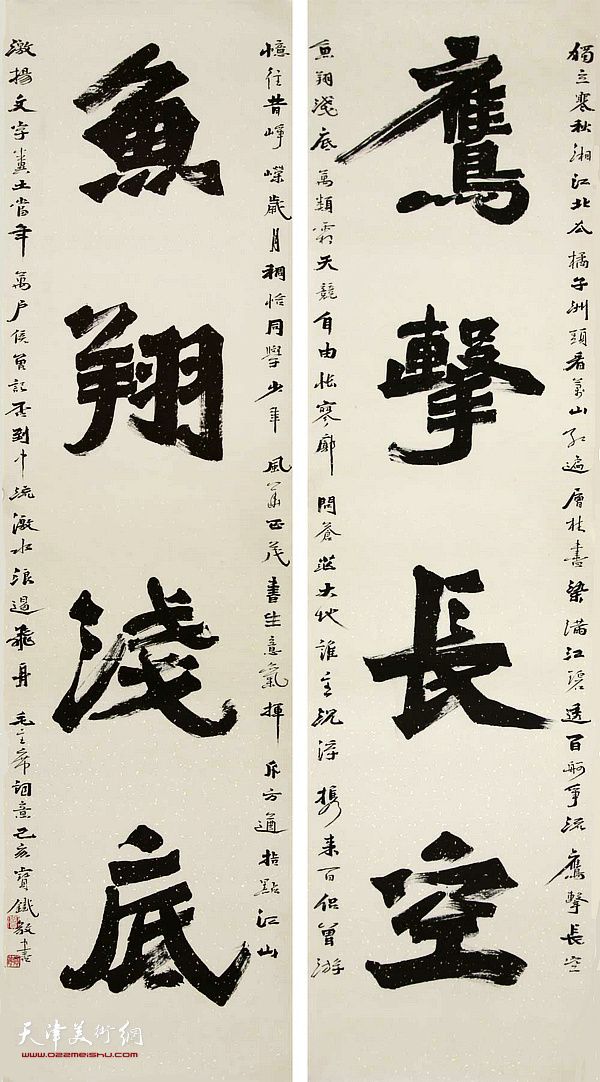 獨立寒秋湘江北去橘子洲頭看萬山紅遍層林盡染滿江碧透百舸爭流鷹擊長空
鷹擊長空
魚翔淺底萬類霜天競自由悵寥廓問蒼茫大地誰主沉浮攜來百侶曾游
憶往昔崢嶸歲月稠恰同學少年風華正茂書生意氣揮斥方遒指點江山
魚翔淺底
激揚文字糞土當年萬戶侯曾記否到中流激水浪遏飛舟毛主席詞意己亥寶鐵毅書
天津美術網
www.022meishu.com